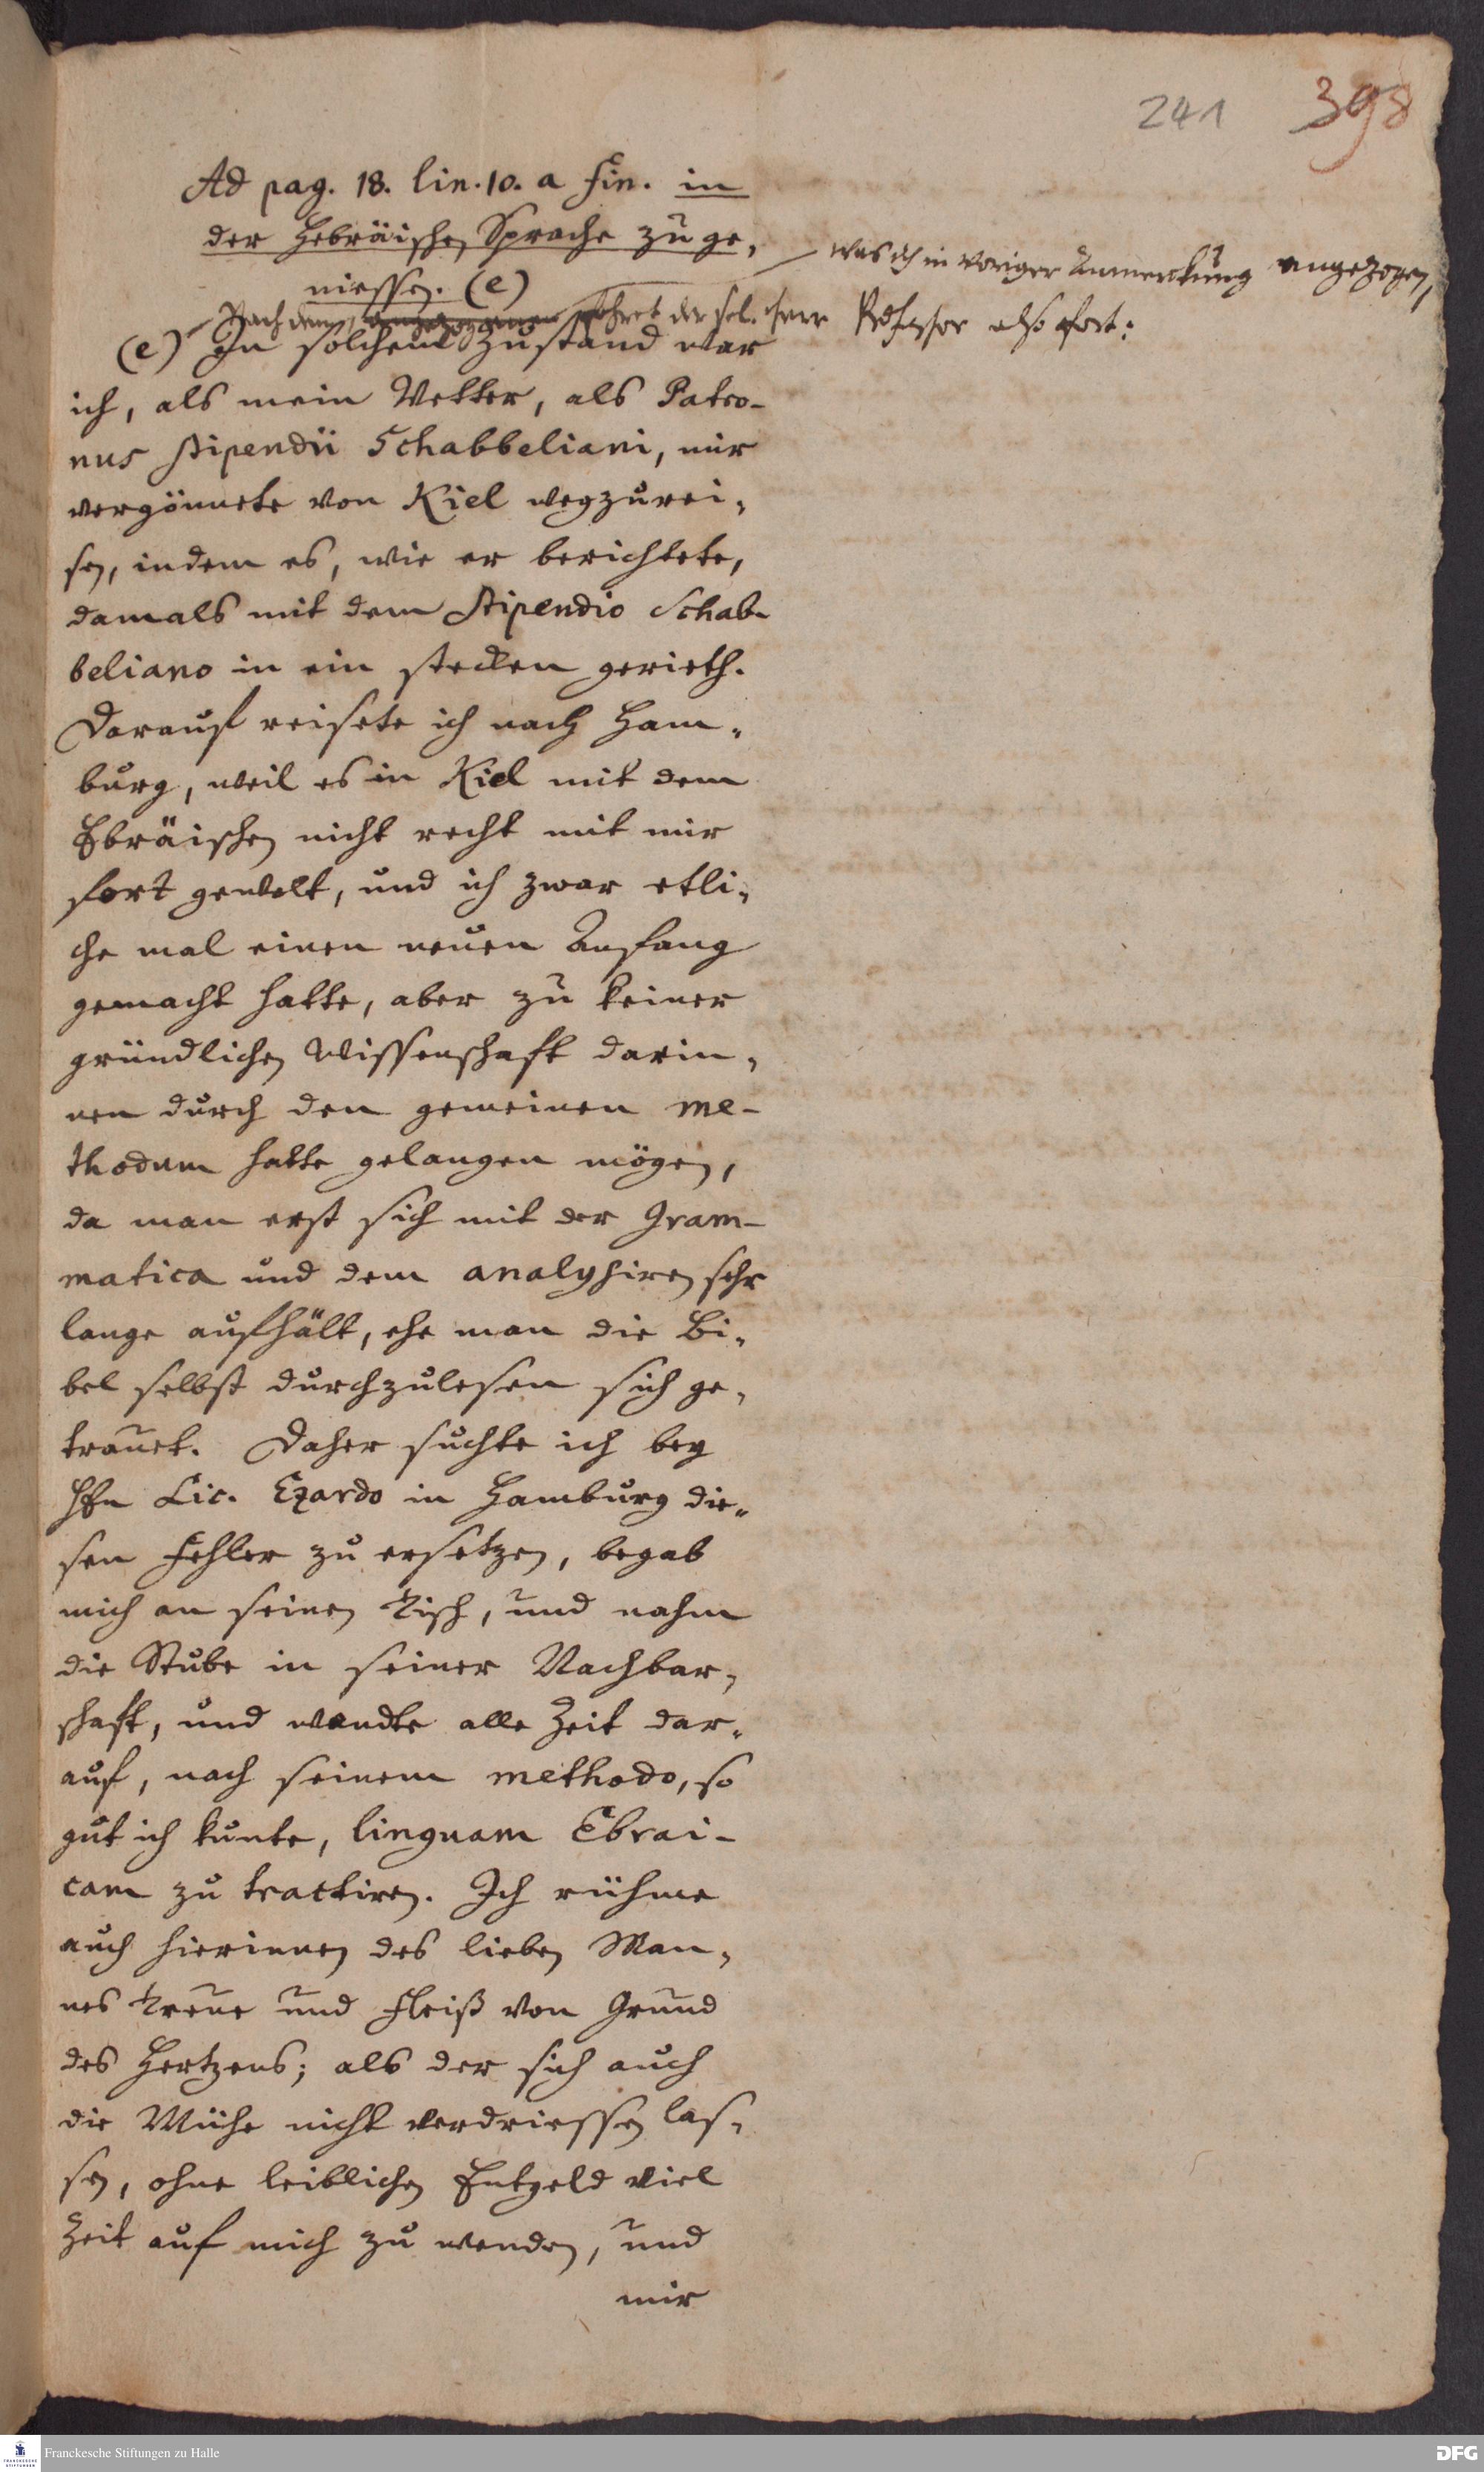 241 398
Ad pag. 18. lin. 10. a fin. in
der Hebräischen Sprache zu ge-
niessen. (e)
Nach dem, angezogenen fähret der sel. Herr Professor also fort:
was ich in voriger Anmerckung angezogen,
(e) In solchem Zustand war
ich, als mein Vetter, als Patro-
nus Stipendii Schabbeliani, mir
vergönnete von Kiel wegzurei-
sen, indem es, wie er berichtete,
damals mit dem Stipendio Schab-
beliano in ein stecken gerieth.
Darauf reisete ich nach Ham-
burg, weil es in Kiel mit dem
Ebräischen nicht recht mit mir
fort gewolt, und ich zwar etli-
che mal einen neuen Anfang
gemacht hatte, aber zu keiner
gründlichen Wissenschaft darin-
nen durch den gemeinen me-
thodum hatte gelangen mögen,
da man erst sich mit der Gram-
matica und dem analysiren sehr
lange aufhält, ehe man die Bi-
bel selbst durchzulesen sich ge-
trauet. Daher suchte ich bey
Hrn Lic. Ezardo in Hamburg die-
sen Fehler zu ersetzen, begab
mich an seinen Tisch, und nahm
die Stube in seiner Nachbar-
schaft, und wandte alle Zeit dar-
auf, nach seinem methodo, so
gut ich kunte, linguam Ebrai-
cam zu tractiren. Ich rühme
auch hierinnen des lieben Man-
nes Treue und Fleiß von Grund
des Hertzens; als der sich auch
die Mühe nicht verdriessen las-
sen, ohne leiblichen Entgeld viel
Zeit auf mich zu wenden, und
mir
Franckesche Stiftungen zu Halle
DFG